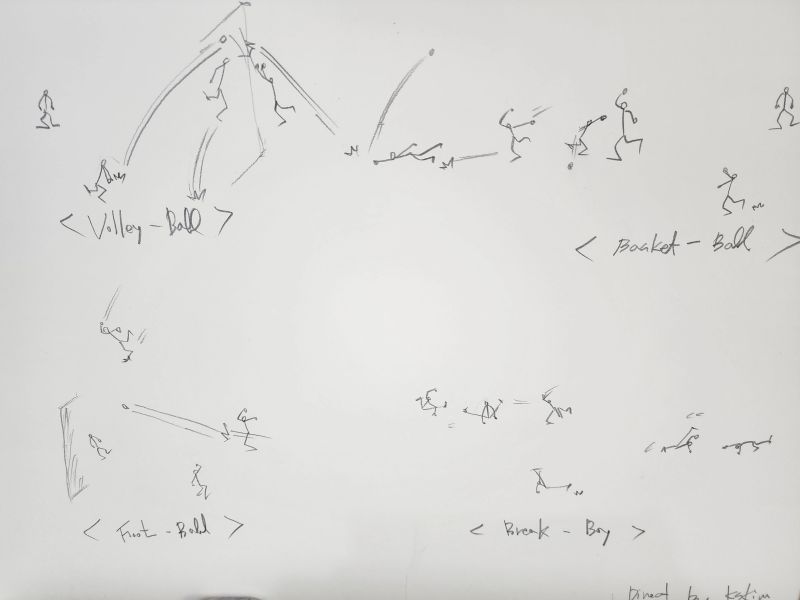 < Volley - Ball >
< Basket - Ball >
< Foot - Ball >
< Break - Boy >
Direct by